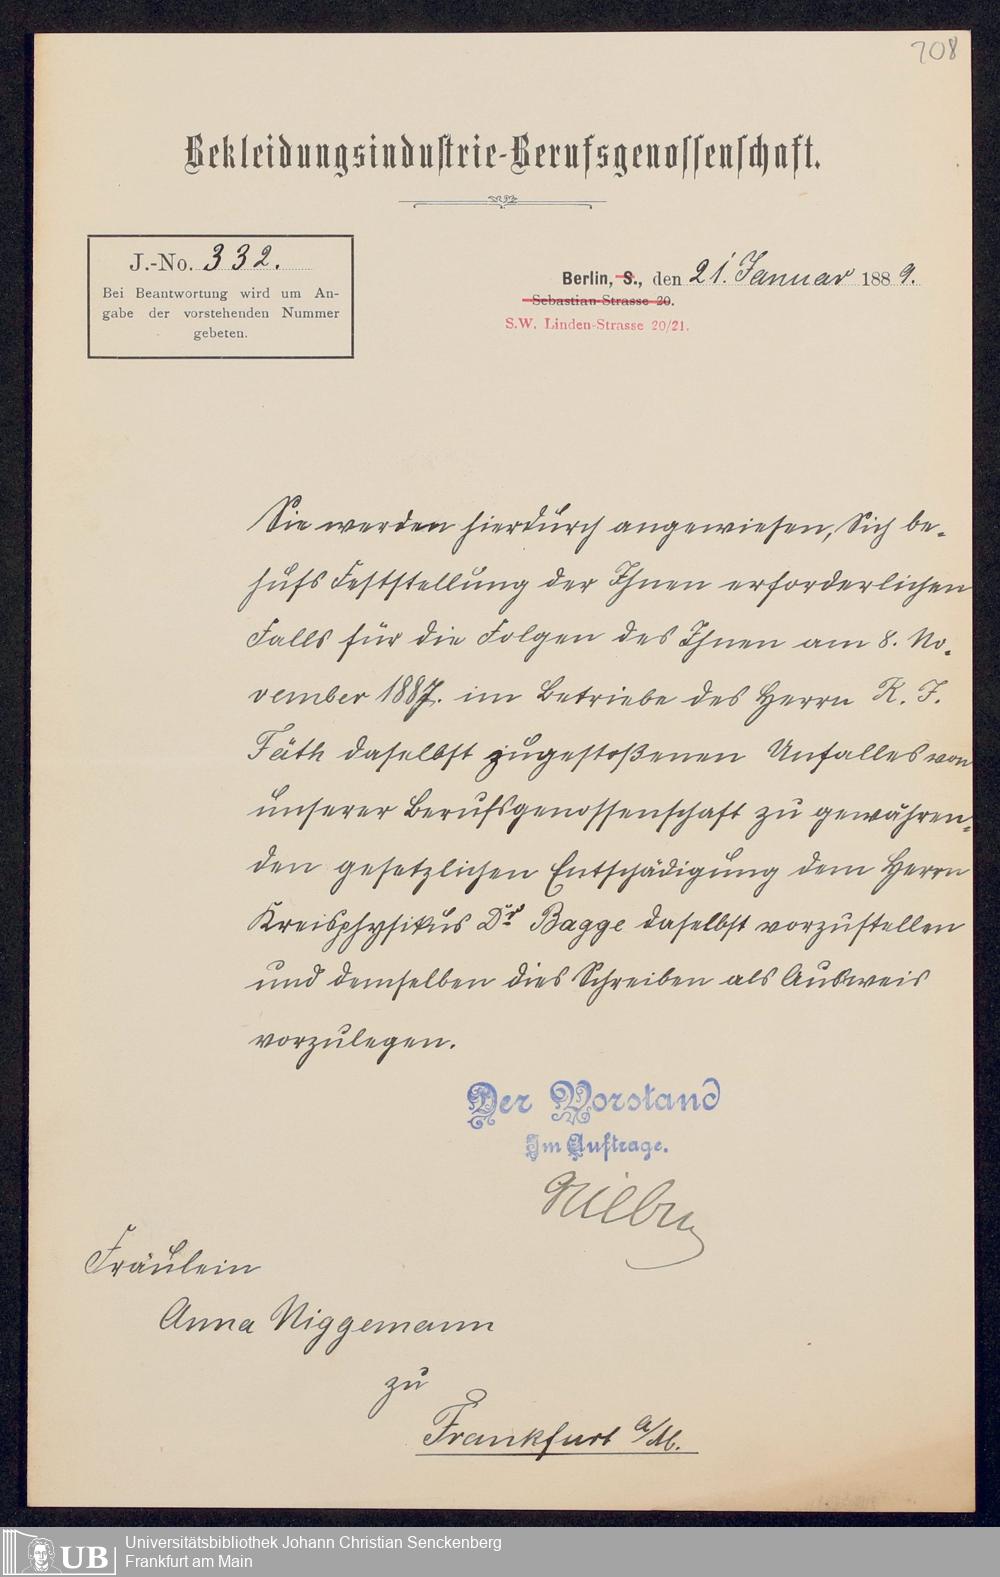 708
Bekleidungsindustrie-Berufsgenossenschaft.
J.-No. 332.
Bei Beantwortung wird um An-
gabe der vorstehenden Nummer
gebeten.
Berlin, S., den 21. Januar 1889.
Sebastian-Strasse 20.
S.W. Linden-Strasse 20/21.
Sie werden hierdurch angewiesen, Sich be-
hufs Feststellung der Ihnen erforderlichen
Falls für die Folgen des Ihnen am 8. No-
vember 1887. im Betriebe des Herrn K. F.
Fäth daselbst zugestoßenen Unfalles von
unserer Berufsgenossenschaft zu gewähren-
den gesetzlichen Entschädigung dem Herrn
Kreisphysikus Dr Bagge daselbst vorzustellen
und demselben dies Schreiben als Ausweis
vorzulegen.
Der Vorstand
Im Auftrage.
Fräulein
Anna Niggemann
zu
Frankfurt a/M.
UB
Universitätsbibliothek Johann Christian Senckenberg
Frankfurt am Main